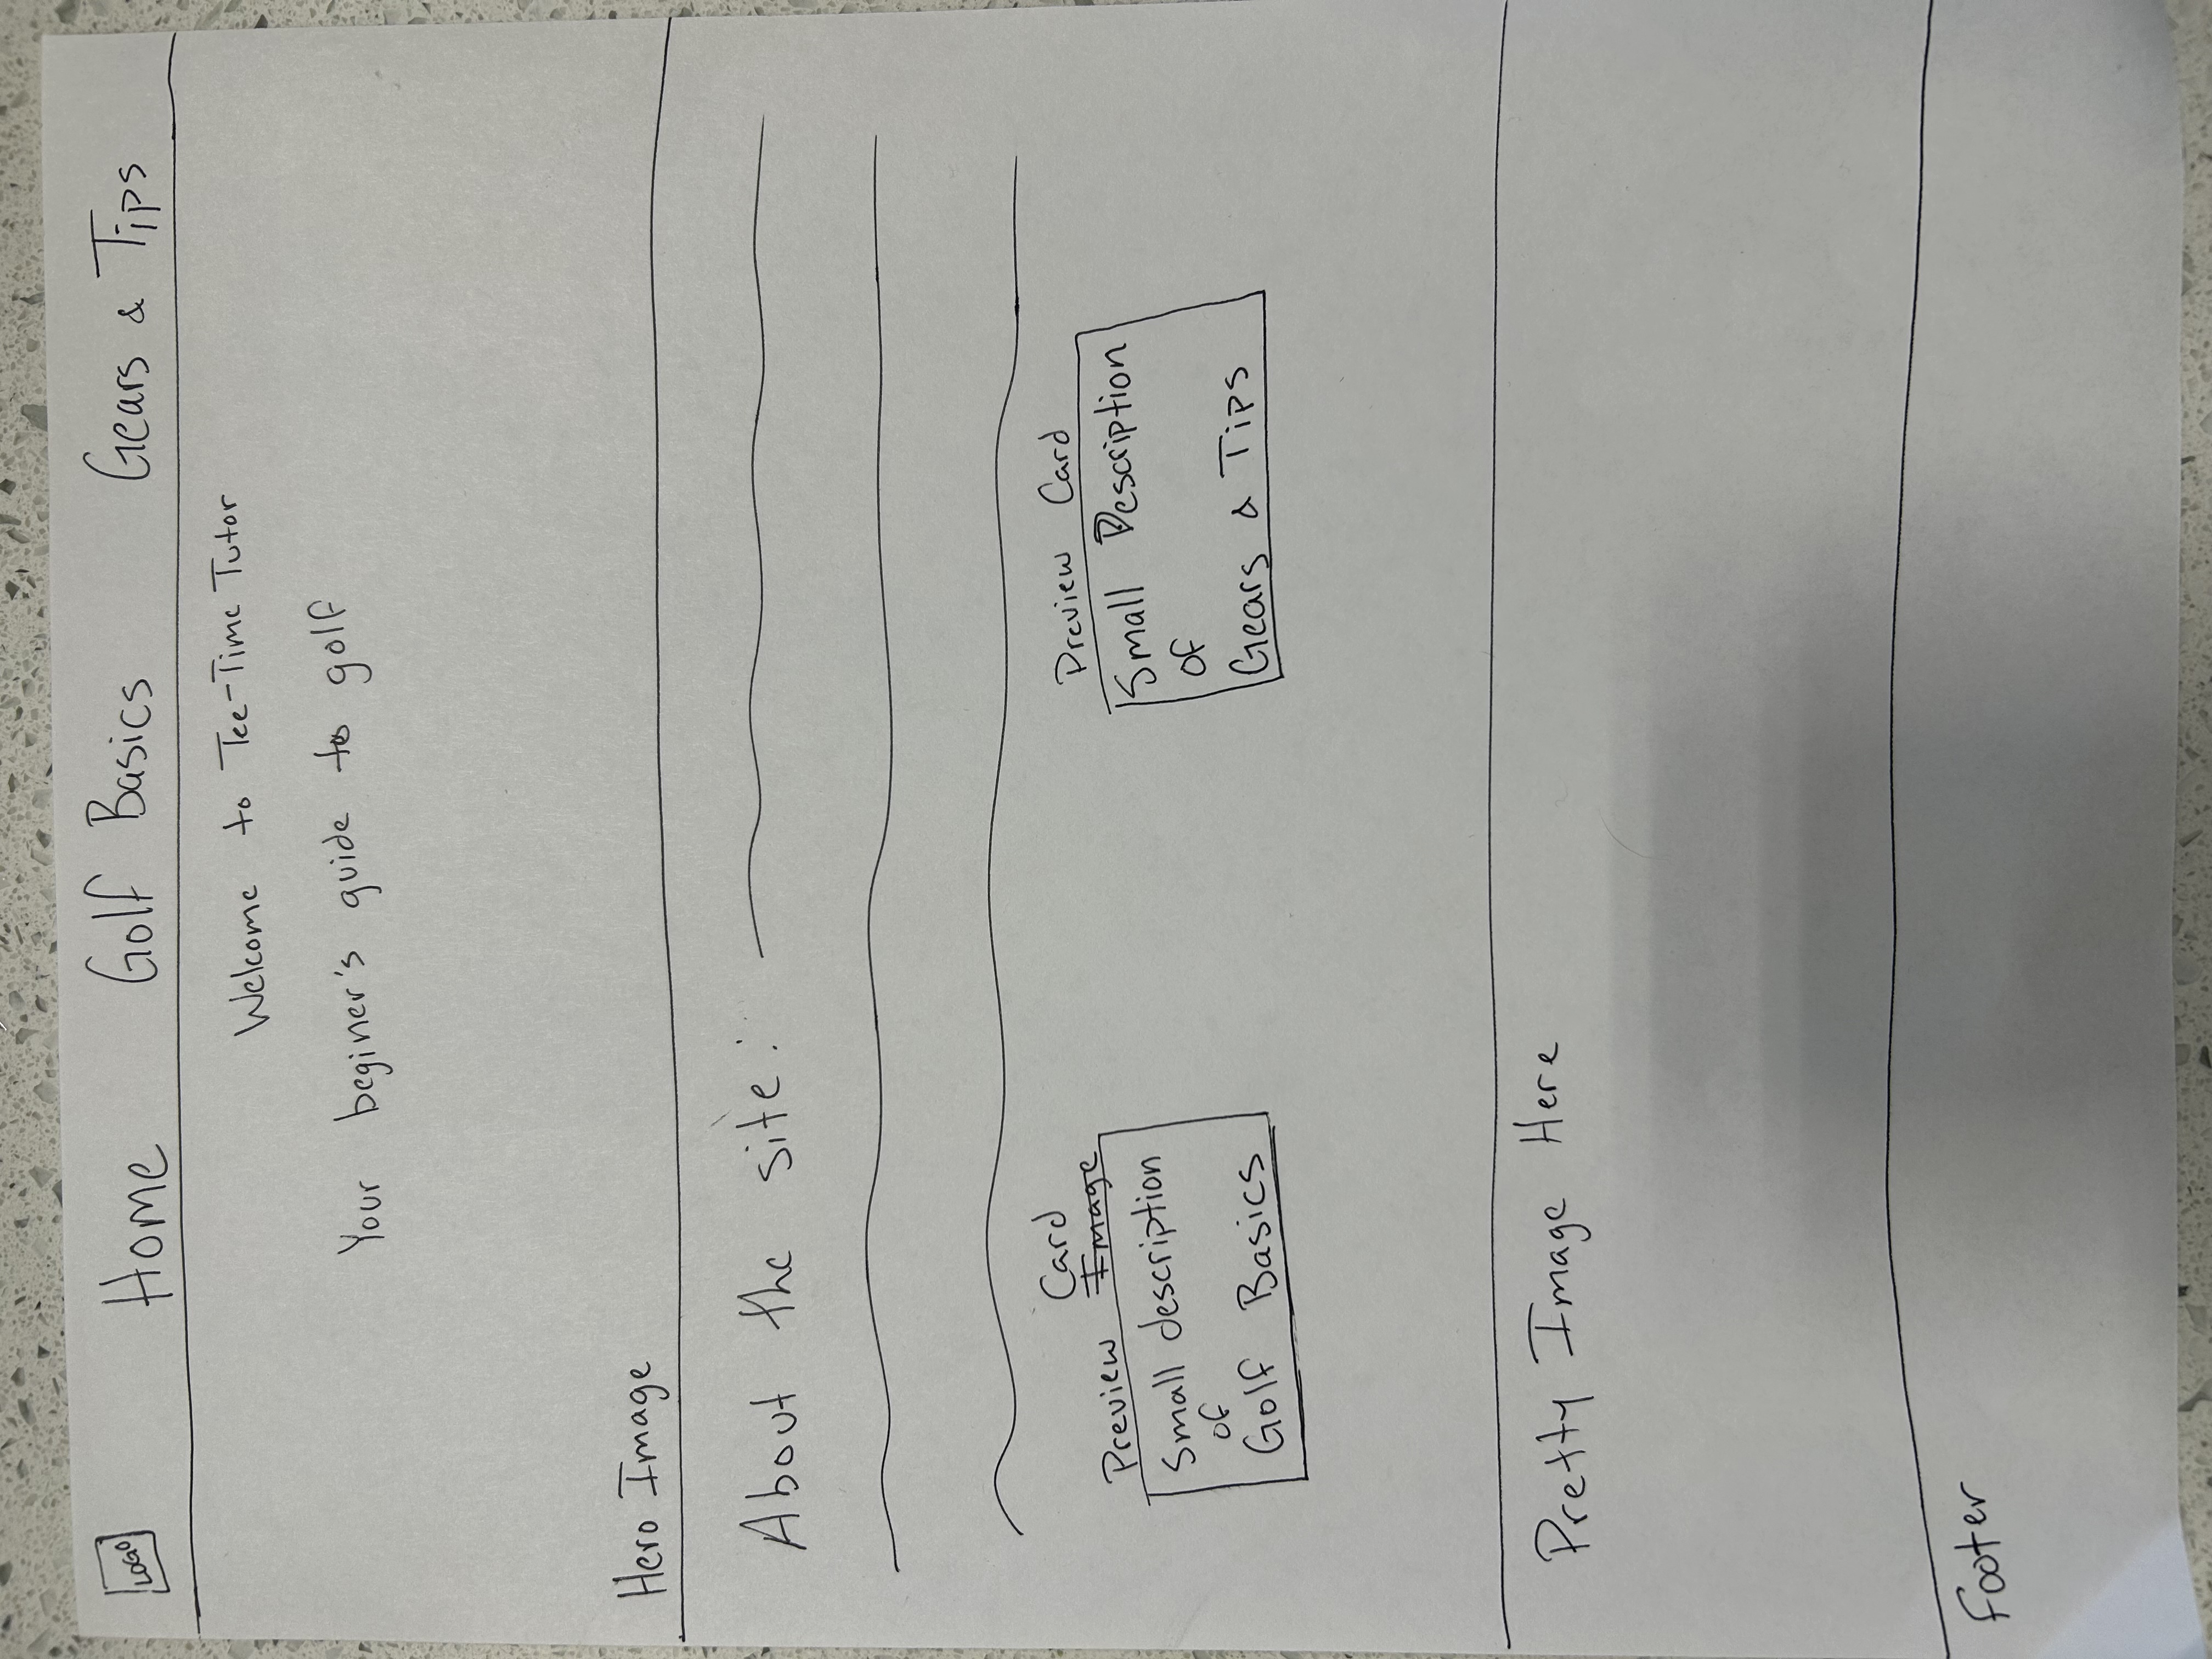 LOGO Home Golf Basics Gears & Tips
Welcome to Tee-Time Tutor
Your beginer's guide to golf
Hero Image
About the site:
Card
Preview Image
Small description
of
Golf Basics
Preview Card
Small Description
of
Gears & Tips
Pretty Image Here
Footer